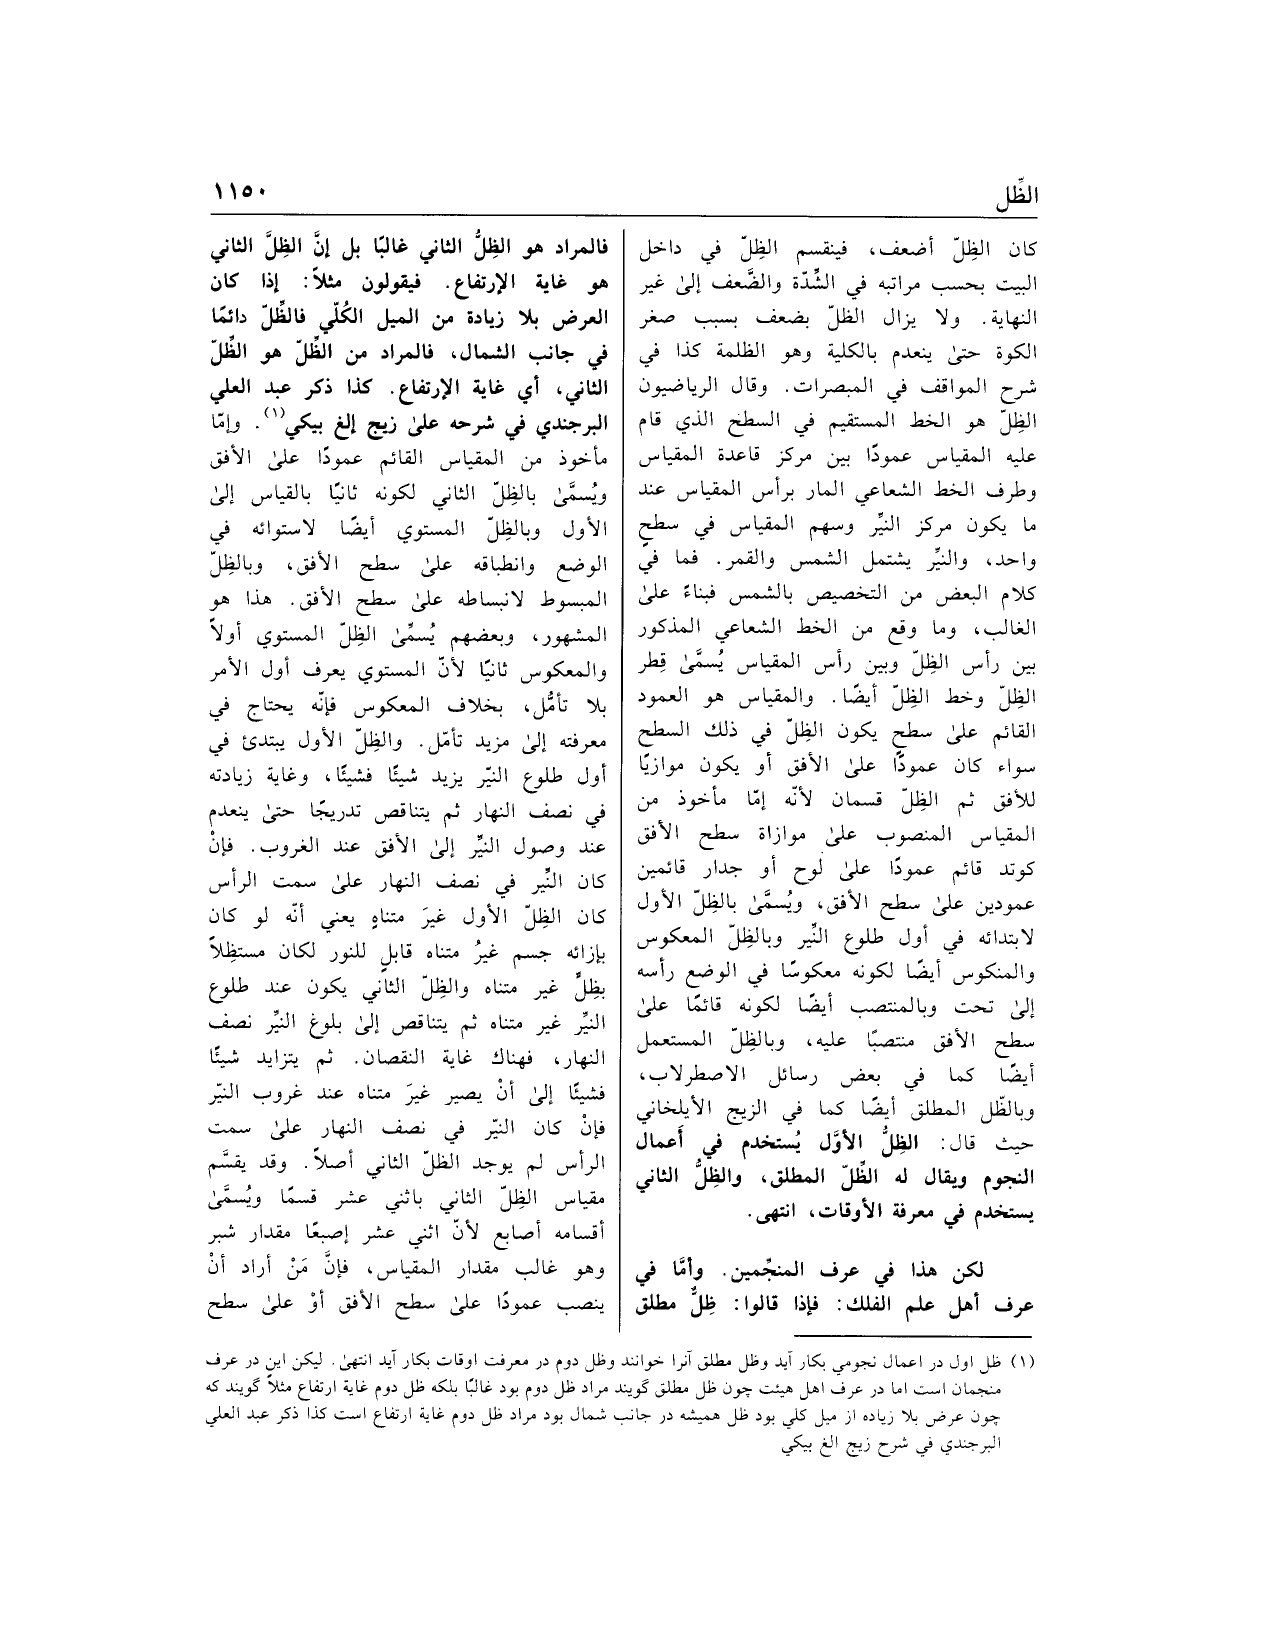 الظِّل
١١٥٠
كان الظِلّ أضعف، فينقسم الظِلّ في داخل
البيت بحسب مراتبه في الشّدّة والضَّعف إلىٰ غير
النهاية. ولا يزال الظلّ بضعف بسبب صغر
الكوة حتىٰ ينعدم بالكلية وهو الظلمة كذا في
شرح المواقف في المبصرات. وقال الرياضيون
الظِلّ هو الخط المستقيم في السطح الذي قام
عليه المقياس عمودًا بين مركز قاعدة المقياس
وطرف الخط الشعاعي المار برأس المقياس عند
ما يكون مركز النيِّر وسهم المقياس في سطحٍ
واحد، والنيِّر يشتمل الشمس والقمر. فما في
كلام البعض من التخصيص بالشمس فبناءً علىٰ
الغالب، وما وقع من الخط الشعاعي المذكور
بين رأس الظِلّ وبين رأس المقياس يُسمَّىٰ قِطر
الظِلّ وخط الظِلّ أيضًا. والمقياس هو العمود
القائم علىٰ سطحٍ يكون الظِلّ في ذلك السطح
سواء كان عمودًا علىٰ الأفق أو يكون موازيًا
للأفق ثم الظِلّ قسمان لأنّه إمّا مأخوذ من
المقياس المنصوب علىٰ موازاة سطح الأفق
كوتد قائم عمودًا علىٰ لوح أو جدار قائمين
عمودين علىٰ سطح الأفق، ويُسمَّىٰ بالظِلّ الأول
لابتدائه في أول طلوع النَّير وبالظِلّ المعكوس
والمنكوس أيضًا لكونه معكوسًا في الوضع رأسه
إلىٰ تحت وبالمنتصب أيضًا لكونه قائمًا علىٰ
سطح الأفق منتصبًا عليه، وبالظِلّ المستعمل
أيضًا كما في بعض رسائل الاصطرلاب،
وبالظّل المطلق أيضًا كما في الزيج الأيلخاني
حيث قال: الظِلُّ الأوَّل يُستخدم في أَعمال
النجوم ويقال له الظِّلّ المطلق، والظِلُّ الثاني
يستخدم في معرفة الأوقات، انتهى.
لكن هذا في عرف المنجِّمين. وأمَّا في
عرف أهل علم الفلك: فإذا قالوا: ظِلٌّ مطلق
فالمراد هو الظِلُّ الثاني غالبًا بل إنَّ الظِلَّ الثاني
هو غاية الإرتفاع. فيقولون مثلاً: إذا كان
العرض بلا زيادة من الميل الكُلّي فالظِّلّ دائمًا
في جانب الشمال، فالمراد من الظِّلّ هو الظِّلّ
الثاني، أي غاية الإرتفاع. كذا ذكر عبد العلي
البرجندي في شرحه علىٰ زيج إلغ بيكي(١). وإمّا
مأخوذ من المقياس القائم عمودًا علىٰ الأفق
ويُسمَّىٰ بالظِلّ الثاني لكونه ثانيًا بالقياس إلىٰ
الأول وبالظِلّ المستوي أيضًا لاستوائه في
الوضع وانطباقه علىٰ سطح الأفق، وبالظِلّ
المبسوط لانبساطه علىٰ سطح الأفق. هذا هو
المشهور، وبعضهم يُسمِّىٰ الظِلّ المستوي أولاً
والمعكوس ثانيًا لأنّ المستوي يعرف أول الأمر
بلا تأمُّل، بخلاف المعكوس فإنّه يحتاج في
معرفته إلىٰ مزيد تأمّل. والظِلّ الأول يبتدئ في
أول طلوع النيّر يزيد شيئًا فشيئًا، وغاية زيادته
في نصف النهار ثم يتناقص تدريجًا حتىٰ ينعدم
عند وصول النيِّر إلىٰ الأفق عند الغروب. فإنْ
كان النِّير في نصف النهار علىٰ سمت الرأس
كان الظِلّ الأول غيرَ متناهٍ يعني أنّه لو كان
بإزائه جسم غيرُ متناه قابلٍ للنور لكان مستظِلاً
بظِلٍّ غير متناه والظِلّ الثاني يكون عند طلوع
النيِّر غير متناه ثم يتناقص إلىٰ بلوغ النيِّر نصف
النهار، فهناك غاية النقصان. ثم يتزايد شيئًا
فشيئًا إلىٰ أنْ يصير غيرَ متناه عند غروب النيّر
فإنْ كان النيّر في نصف النهار علىٰ سمت
الرأس لم يوجد الظلّ الثاني أصلاً. وقد يقسَّم
مقياس الظِلّ الثاني باثني عشر قسمًا ويُسمَّىٰ
أقسامه أصابع لأنّ اثني عشر إصبعًا مقدار شبر
وهو غالب مقدار المقياس، فإنَّ مَنْ أراد أنْ
ينصب عمودًا علىٰ سطح الأفق أوْ علىٰ سطح
(١) ظل اول در اعمال نجومي بكار آيد وظل مطلق آنرا خوانند وظل دوم در معرفت اوقات بكار آيد انتهىٰ. ليكن اين در عرف
منجمان است اما در عرف اهل هيئت چون ظل مطلق گويند مراد ظل دوم بود غالبًا بلكه ظل دوم غاية ارتفاع مثلاً گويند كه
چون عرض بلا زياده از ميل كلي بود ظل هميشه در جانب شمال بود مراد ظل دوم غاية ارتفاع است كذا ذكر عبد العلي
البرجندي في شرح زيج الغ بيكي